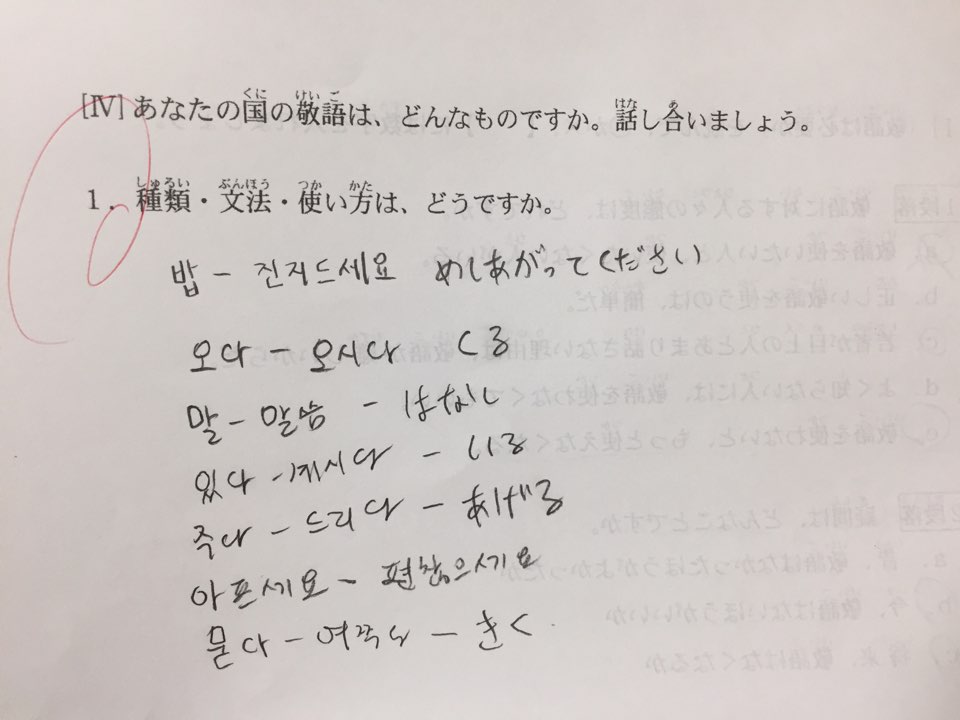 [Ⅳ] あなたの国の敬語は、どんなものですか。話し合いましょう。
1. 種類・文法・使い方は、どうですか。
밥 - 진지드세요 めしあがってください
오다 - 오시다 くる
말 - 말씀 - はなし
있다 - 계시다 - いる
주다 - 드리다 - あげる
아프세요 - 편찮으세요
묻다 - 여쭈다 - きく